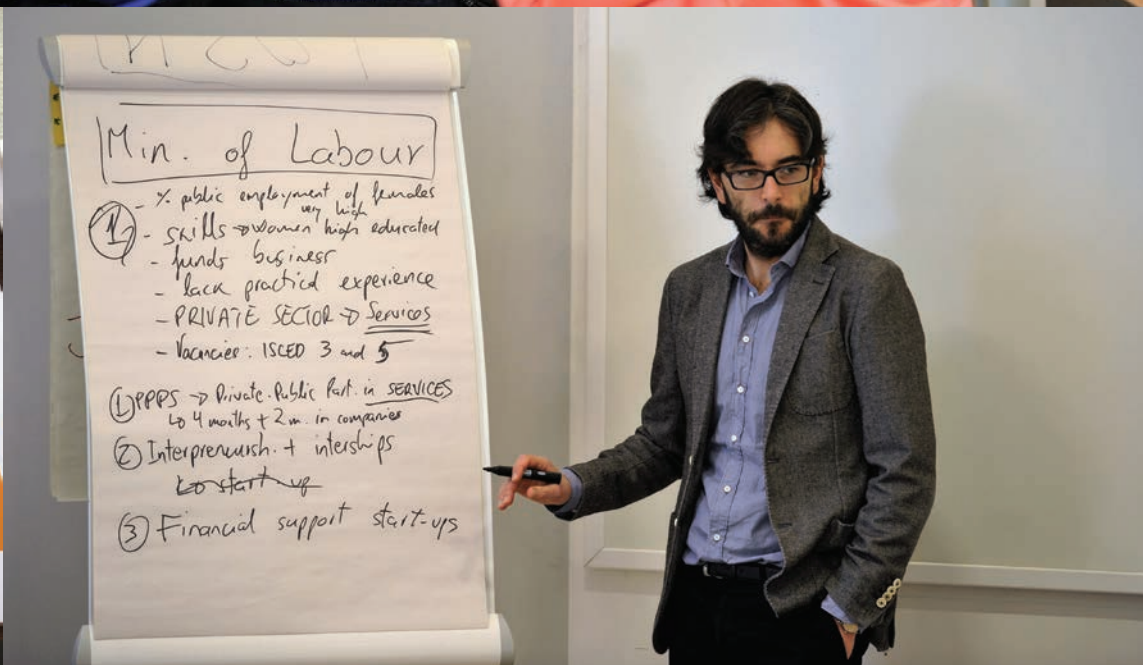 Min. of Labour
- % public employment of females
very high
① - skills → women high educated
- funds business
- lack practical experience
- PRIVATE SECTOR → Services
- Vacancies: ISCED 3 and 5
① PPPS → Private-Public Part. in SERVICES
↳ 4 months + 2 m. in companies
② Interpreneursh. + interships
↳ start-up
③ Financial support start-ups